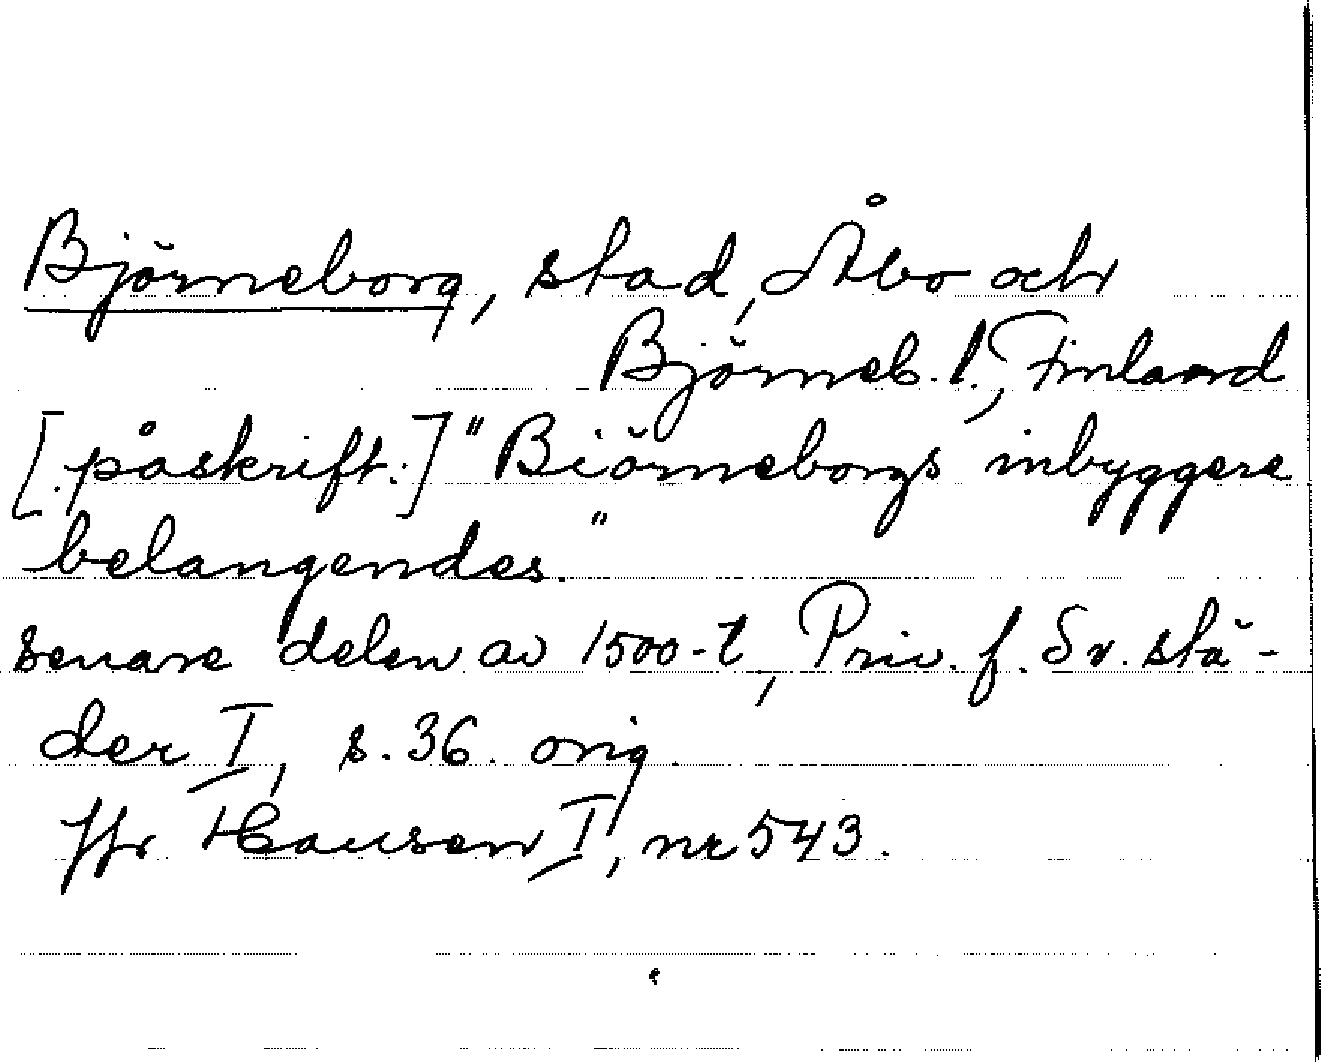 Björneborg, stad, Åbo och
Björneb. l., Finland
[påskrift:] "Biörneborgs inbyggere
belangendes."
senare delen av 1500-t, Priv. f. Sv. stä-
der I, s. 36. orig.
Jfr Hausen I, nr 543.